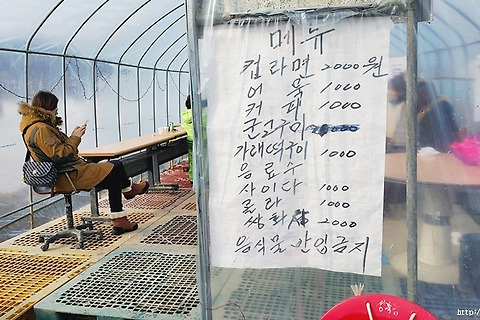 메뉴
컵라면 2000원
어묵 1000
커피 1000
군고구마
가래떡구이 1000
음료수
사이다 1000
콜라 1000
쌍화 2000
음식물 반입금지
http:/